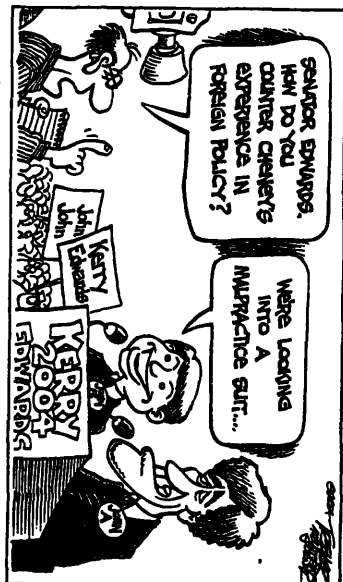 SENATOR EDWARDS,
HOW DO YOU
COUNTER CHENEY'S
EXPERIENCE IN
FOREIGN POLICY?
WE'RE LOOKING
INTO A
MALPRACTICE SUIT...
John
John
Kerry
Edwards
KERRY
2004
EDWARDS